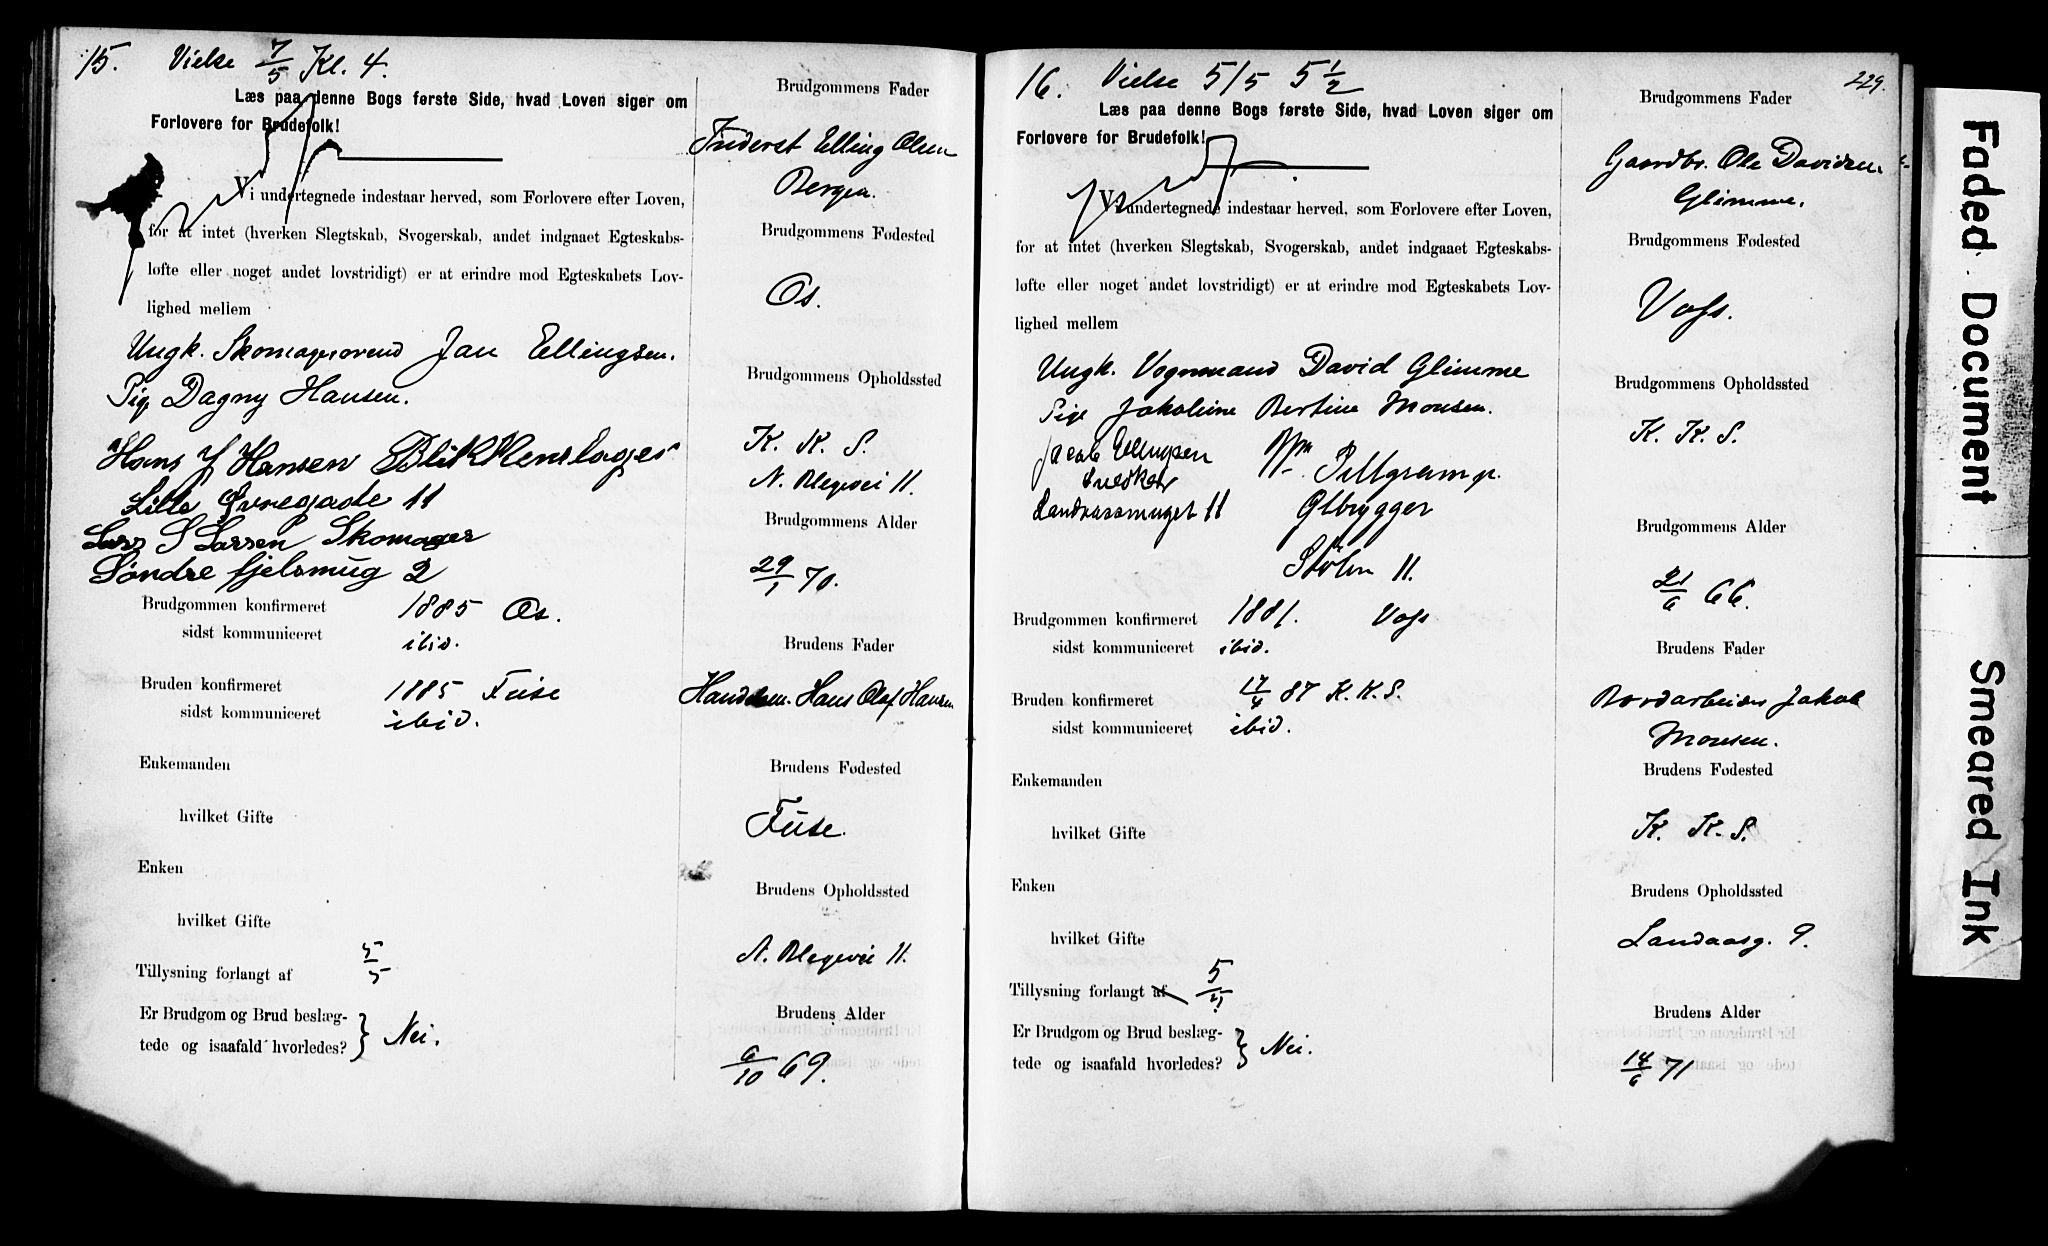 15. Vielse 7/5 Kl. 4.
Læs paa denne Bogs første Side, hvad Loven siger om
Forlovere for Brudefolk!
Vi undertegnede indestaar herved, som Forlovere efter Loven,
for at intet (hverken Slegtskab, Svogerskab, andet indgaaet Egteskabs-
løfte eller noget andet lovstridigt) er at erindre mod Egteskabets Lov-
lighed mellem
Ungk. Skomagersvend Jan Ellingsen.
Pige Dagny Hansen.
Hans J Hansen Blikkenslager
Lille Øvregade 11
Lars S Larsen Skomager
Søndre fjelsmug 2
Brudgommen konfirmeret 1885 Os.
sidst kommuniceret ibid.
Bruden konfirmeret 1885 Fuse
sidst kommuniceret ibid.
Enkemanden
hvilket Gifte
Enken
hvilket Gifte
Tillysning forlangt af 5/5
Er Brudgom og Brud beslæg-
tede og isaafald hvorledes? } Nei.
Brudgommens Fader
Inderst Elling Olsen
Bergen.
Brudgommens Fødested
Os.
Brudgommens Opholdssted
K. K. S.
N. Blegevei 11.
Brudgommens Alder
29/1 70.
Brudens Fader
Handelsm. Hans Olaf Hansen
Brudens Fødested
Fuse.
Brudens Opholdssted
N. Blegevei 11.
Brudens Alder
9/10 69.
16. Vielse 5/5 5 1/2
229.
Læs paa denne Bogs første Side, hvad Loven siger om
Forlovere for Brudefolk!
Vi undertegnede indestaar herved, som Forlovere efter Loven,
for at intet (hverken Slegtskab, Svogerskab, andet indgaaet Egteskabs-
løfte eller noget andet lovstridigt) er at erindre mod Egteskabets Lov-
lighed mellem
Ungk. Vognmand David Glimme
Pige Jakobine Bertine Monsen.
Jacob Ellingsen
Snedker
Landaassmuget 11
Wm Pillgram jr.
Ølbrygger
Stølen 11.
Brudgommen konfirmeret 1881. Voss
sidst kommuniceret ibid.
Bruden konfirmeret 17/4 87 K. K. S.
sidst kommuniceret ibid.
Enkemanden
hvilket Gifte
Enken
hvilket Gifte
Tillysning forlangt af 5/5
Er Brudgom og Brud beslæg-
tede og isaafald hvorledes? } Nei.
Brudgommens Fader
Gaardbr. Ole Davidsen
Glimme.
Brudgommens Fødested
Voss.
Brudgommens Opholdssted
K. K. S.
Brudgommens Alder
21/6 66.
Brudens Fader
Bordarbeider Jakob
Monsen.
Brudens Fødested
K. K. S.
Brudens Opholdssted
Landaasg. 9.
Brudens Alder
14/6 71
Faded Document
Smeared Ink